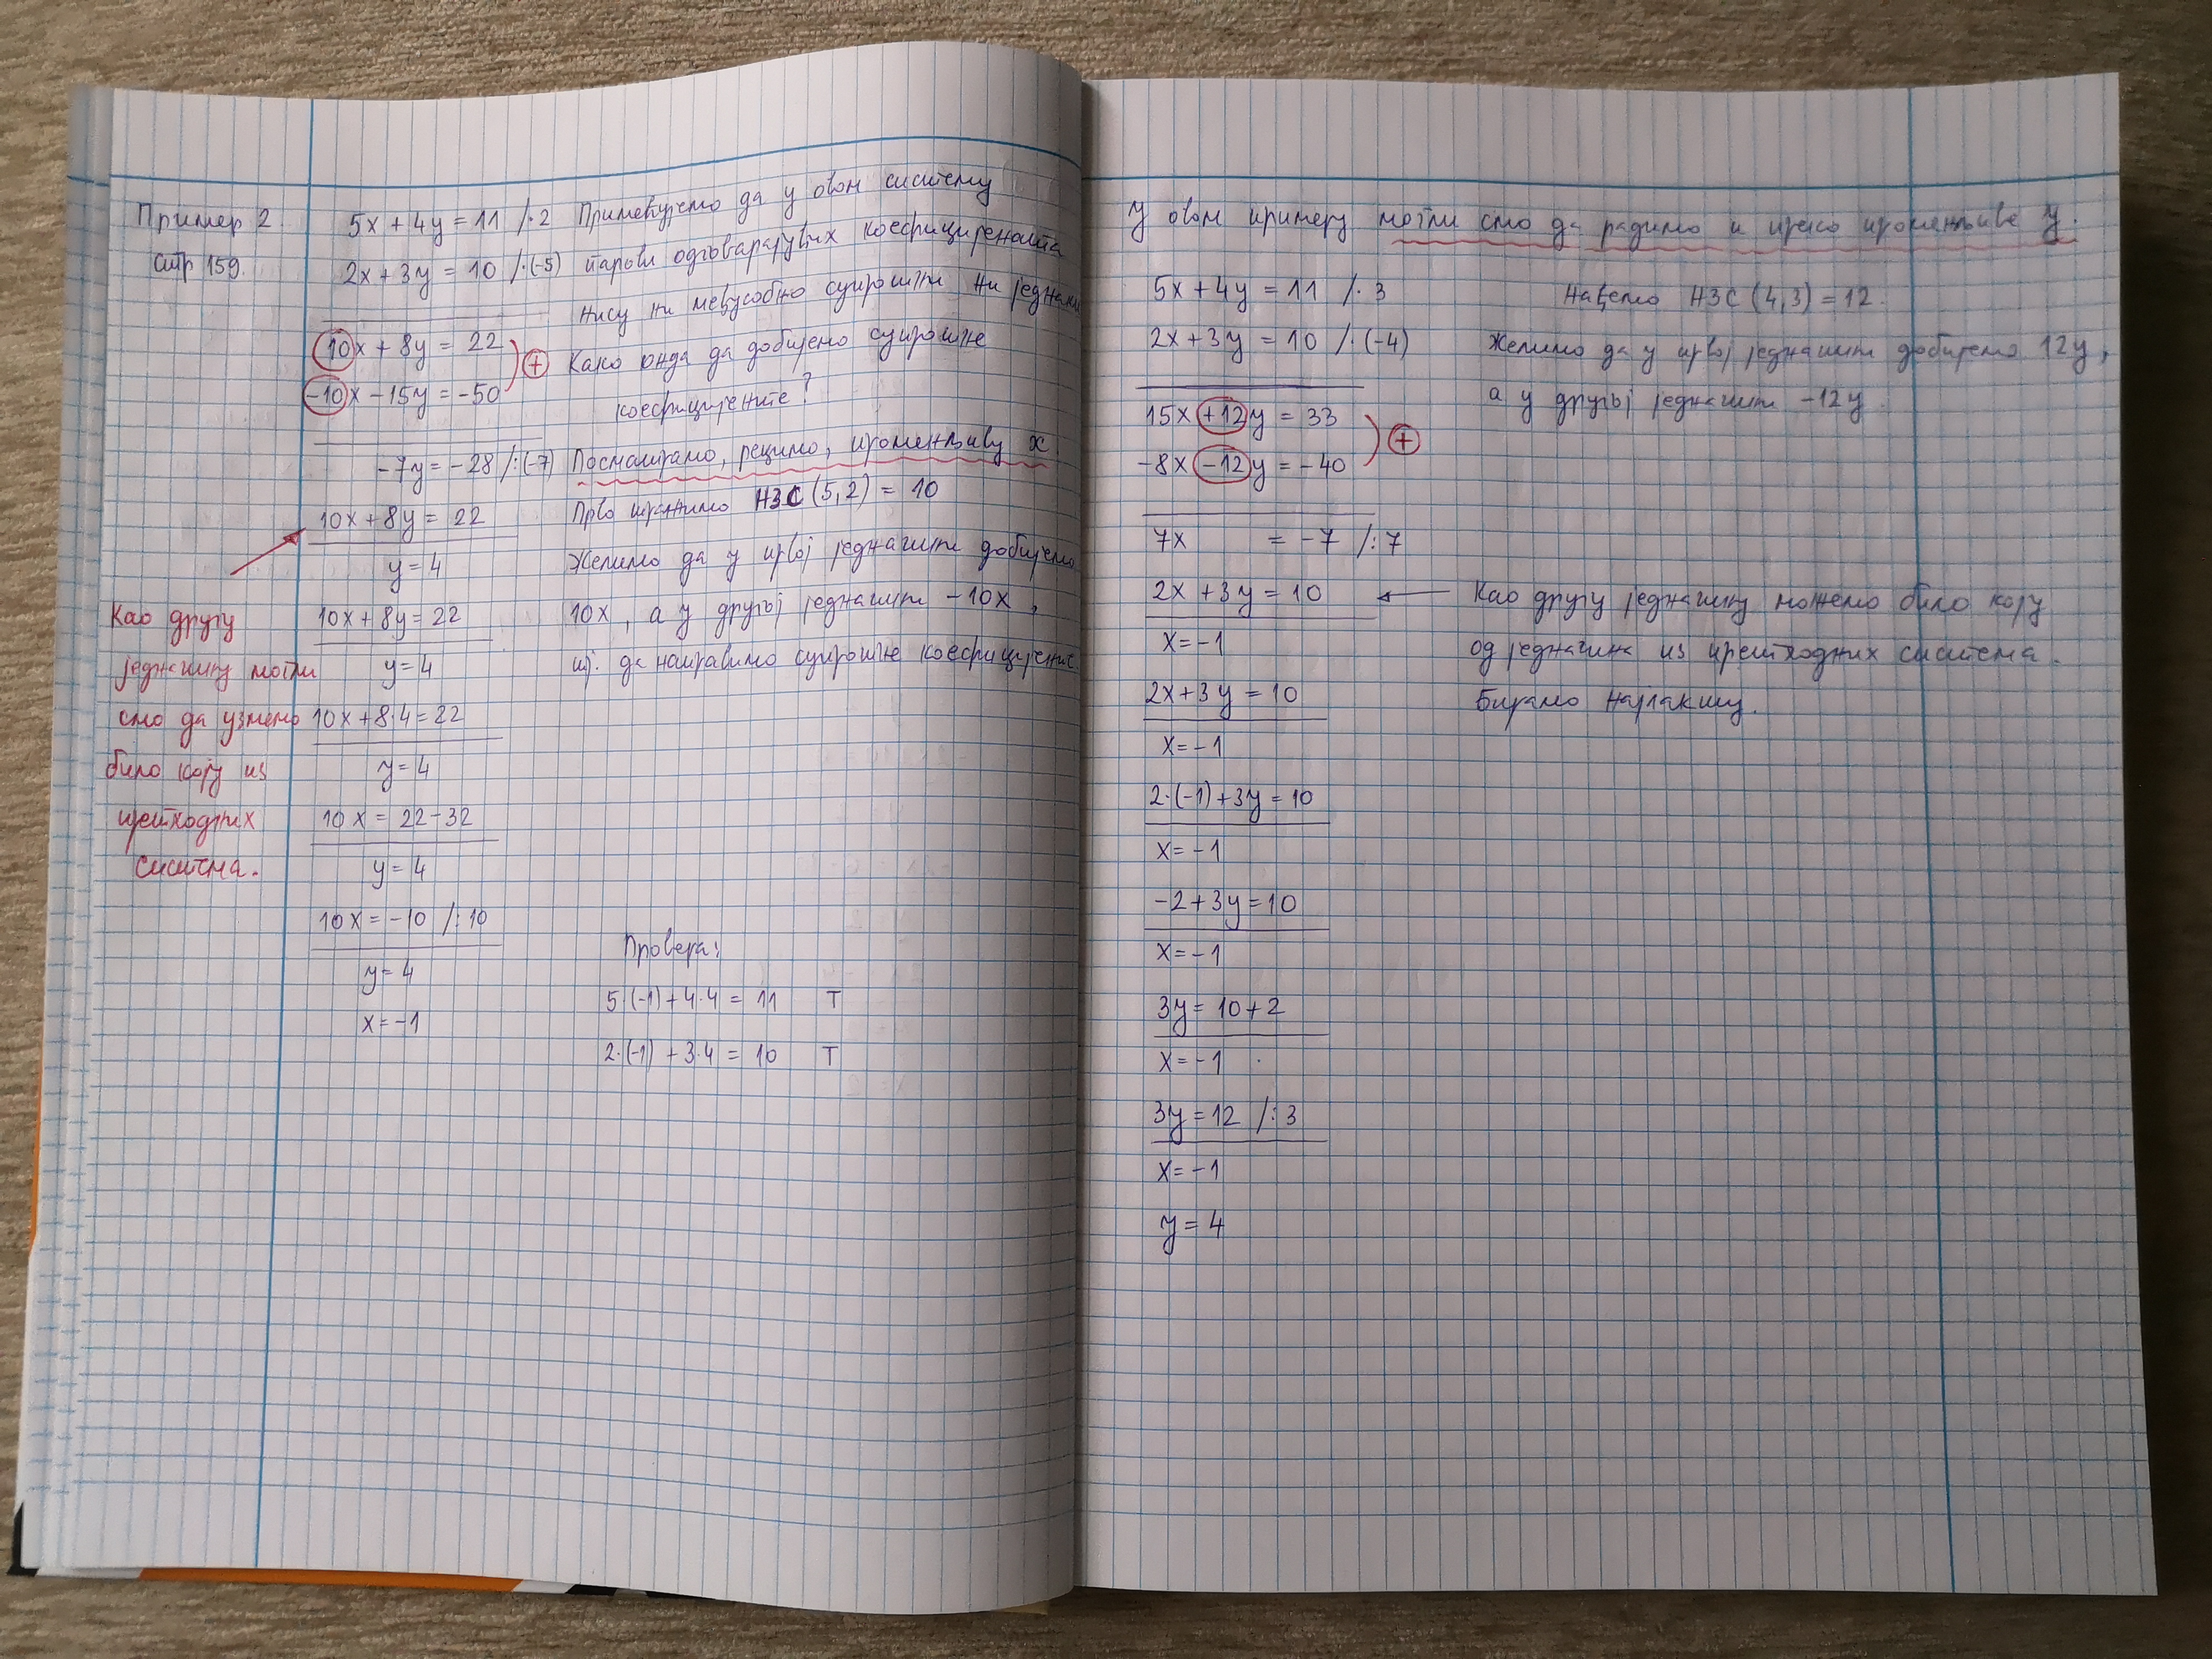 Пример 2.
стр 159.
5x + 4y = 11 /·2
2x + 3y = 10 /·(-5)
10x + 8y = 22
-10x - 15y = -50
+
-7y = -28 /:(-7)
10x + 8y = 22
y = 4
10x + 8y = 22
y = 4
10x + 8·4 = 22
y = 4
10x = 22 - 32
y = 4
10x = -10 /:10
y = 4
x = -1
Као другу
једначину могли
смо да узмемо
било коју из
претходних
система.
Примећујемо да у овом систему
парови одговарајућих коефицијената
нису ни међусобно супротни ни једнаки
Како онда да добијемо супротне
коефицијенте?
Посматрамо, рецимо, променљиву x
Прво тражимо НЗС (5,2) = 10
Желимо да у првој једначини добијемо
10x, а у другој једначини -10x,
тј. да направимо супротне коефицијенте.
Провера:
5·(-1) + 4·4 = 11 T
2·(-1) + 3·4 = 10 T
У овом примеру могли смо да радимо и преко променљиве y.
5x + 4y = 11 /·3
2x + 3y = 10 /·(-4)
15x +12y = 33
-8x -12y = -40
+
7x = -7 /:7
2x + 3y = 10
x = -1
2x + 3y = 10
x = -1
2·(-1) + 3y = 10
x = -1
-2 + 3y = 10
x = -1
3y = 10 + 2
x = -1
3y = 12 /:3
x = -1
y = 4
Нађемо НЗС (4,3) = 12.
Желимо да у првој једначини добијемо 12y,
а у другој једначини -12y.
Као другу једначину можемо било коју
од једначина из претходних система.
Бирамо најлакшу.